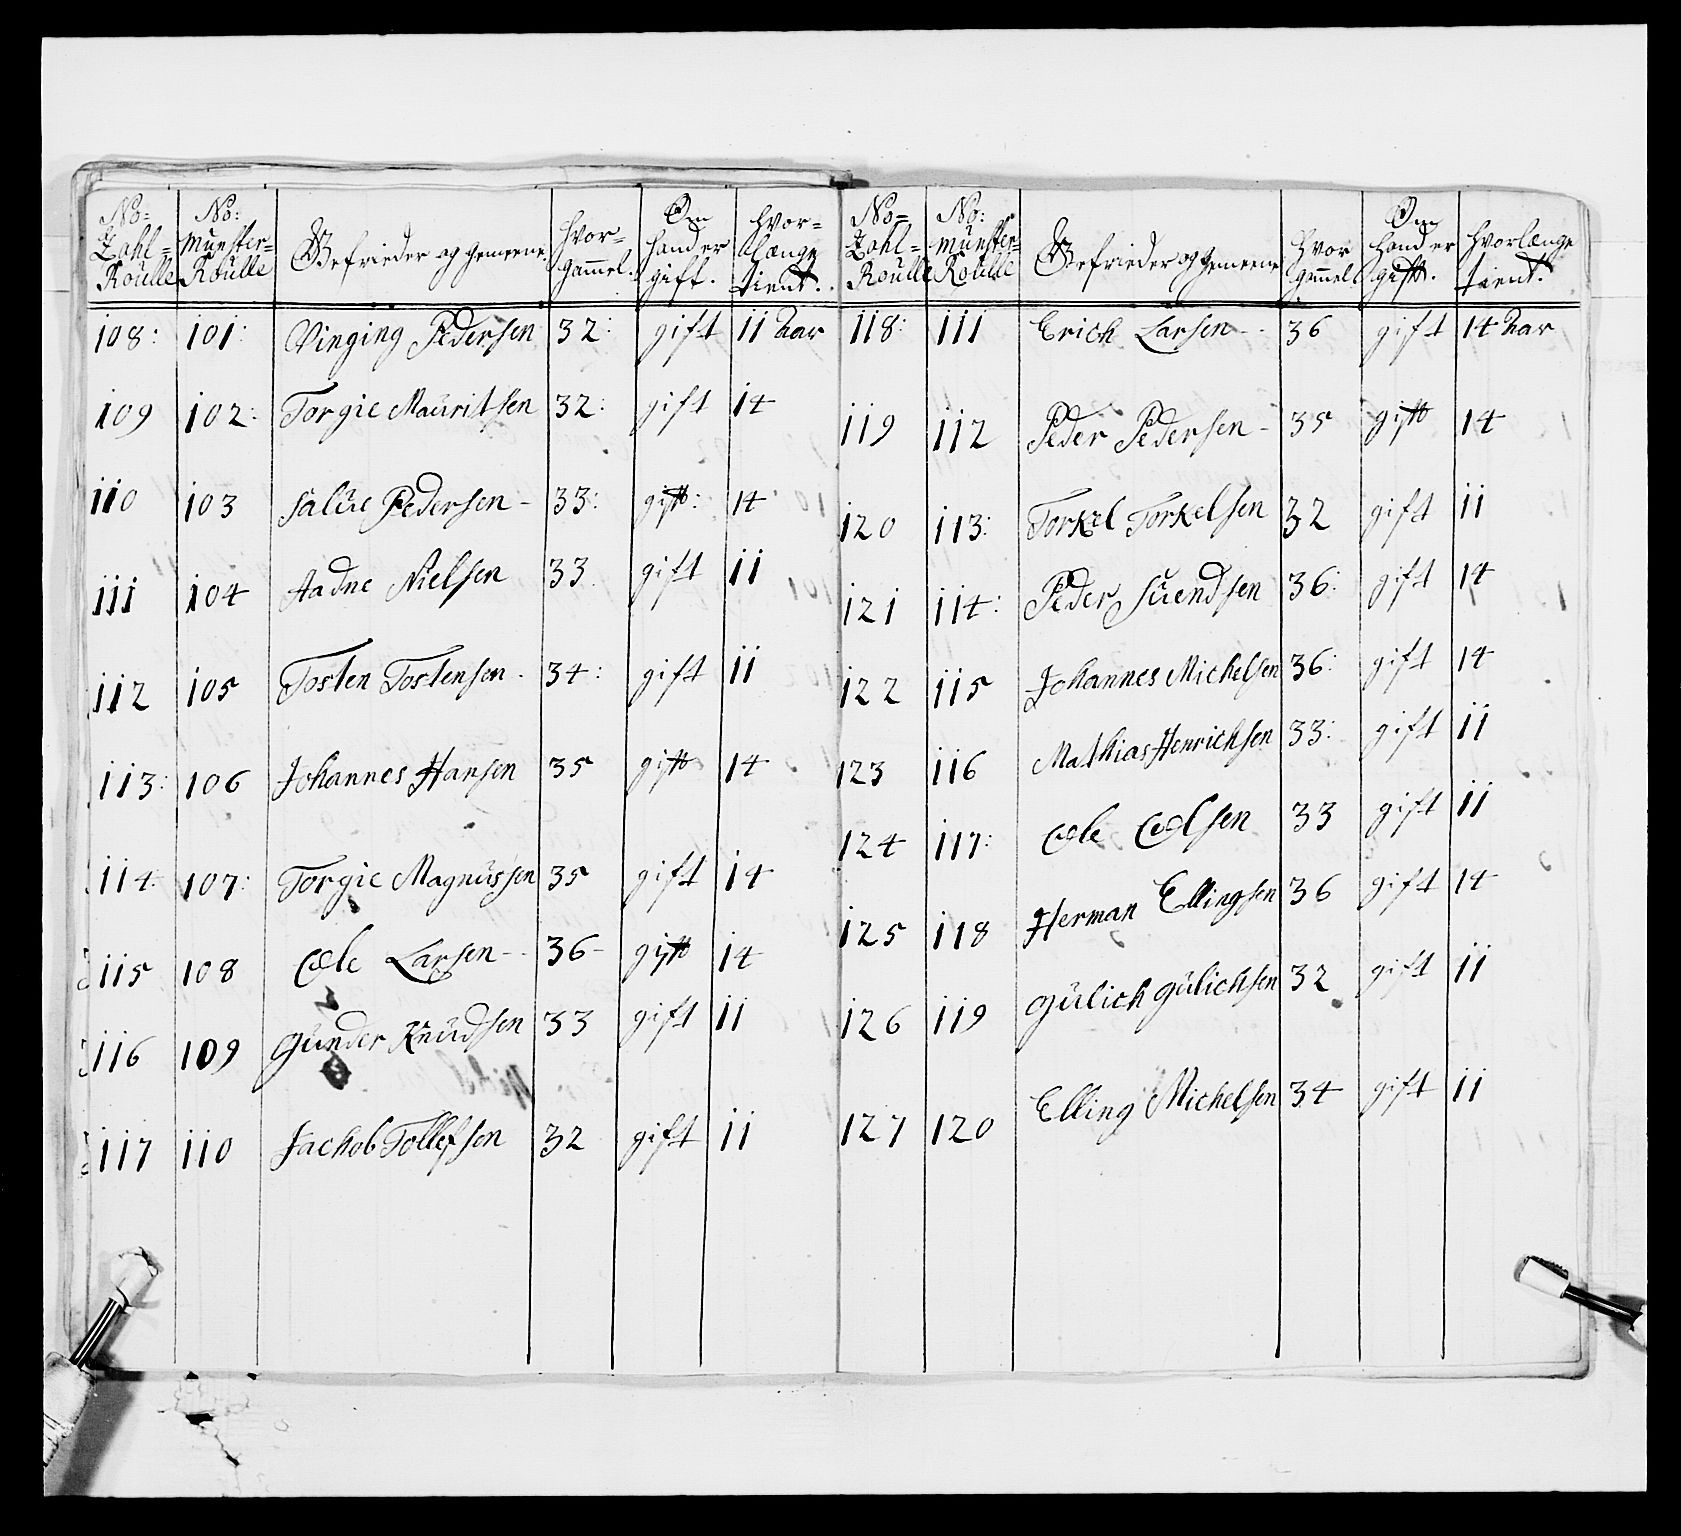 No= Zahl= Roulle No: Munster= Roulle Befrieder og gemeene Hvor= gammel. Om hand er gift. Hvor= længe tient.
108: 101: Vinging Pedersen 32: gift 11 aar
109 102: Torgie Mauritsen 32: gift 14
110 103 Salüe Pedersen - 33: gift: 14
111 104 Aadne Nielsen 33 gift 11
112 105 Tosten Tostensen. 34: gift 11
113: 106 Johannes Hansen 35 gift 14
114: 107: Torgie Magnussen 35 gift 14
115 108 Ole Larsen - - 36 - gift 14
116 109 Gunder Knudsen 33 gift 11
117 110 Jachob Tollefsen 32 gift 11
No= Zahl= Roulle No: Munster= Roulle Befrieder og gemeene Hvor gammel Om hand er gift. Hvorlænge tient.
118: 111 Erich Larsen - - 36 gift 14 aar
119 112 Peder Pedersen - 35 gift 14
120 113: Torkel Torkelsen 32 gift 11
121 114: Peder Suendsen 36: gift 14
122 115 Johannes Michelsen 36: gift 14
123 116 Mathias Henrichsen 33: gift 11
124 117: Ole Olsen 33 gift 11
125 118 Herman Ellingsen 36 gift 14
126 119 Gülich Gülichsen 32 gift 11
127 120 Elling Michelsen 34 gift 11